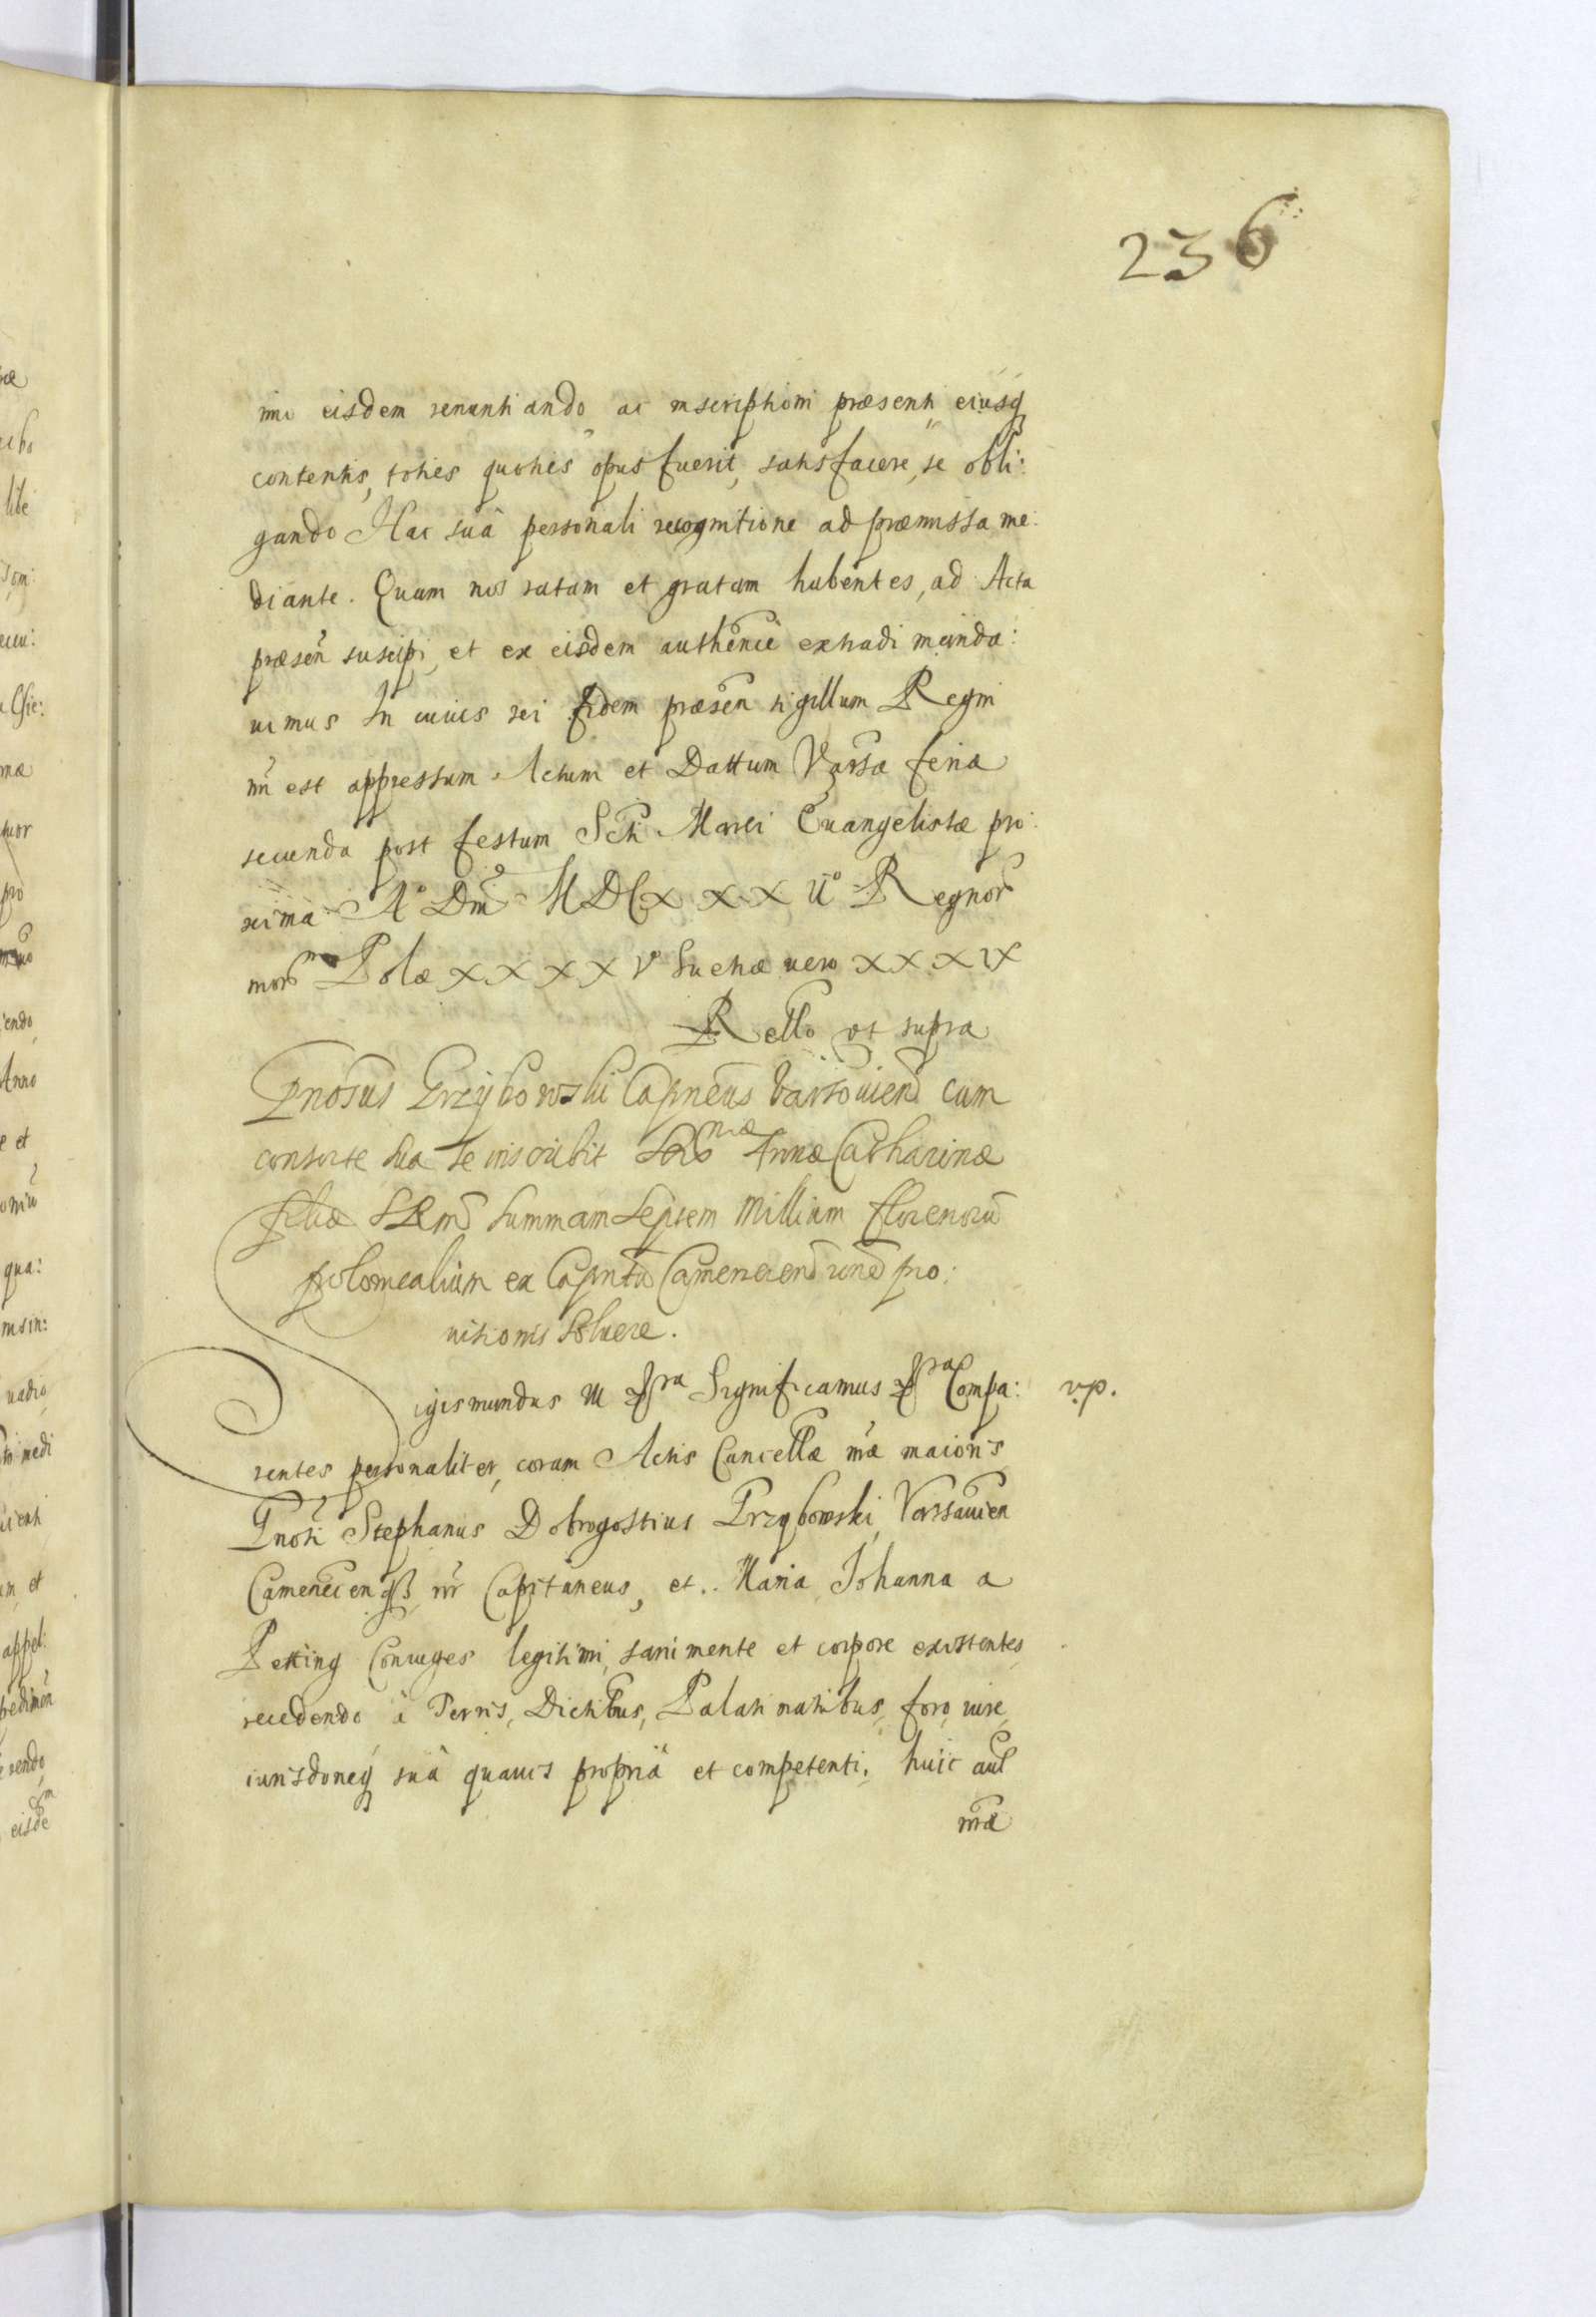 236
imi eisdem renuntiando ac inscriptioni præsenti eiusq
contentis, toties quoties opus fuerit, satisfacere, se obli:
gando Hac suâ personali recognitione ad præmissa me:
diante. Quam nos ratam et gratam habentes, ad Acta
præsen suscipi, et ex eisdem authencè extradi manda:
uimus In cuius rei fidem præsen sigillum Regni
nrı̃ est appressum. Actum et Dattum Varsæ feriâ
secunda post festum Scti Marci Euangelistæ pro:
xima Aº Dni MDCXXXIIº Regnor
nror Polæ XXXXVº Sueciæ uero XXXIX
Rello vt supra
Gnosus Przybowski Capneus Varsouien cum
consorte sua se inscribit Sermæ Annæ Catharinæ
filiæ SRM summam septem Millium florenoru
polonicalium ex Capntu Camenecen rone pro:
uisionis soluere.
igismundus III ꝑra Significamus ꝑra Compa: v.p.
rentes personaliter, coram Actis Cancellæ nræ maioris
Gnosi Stephanus Dobrogostius Przybowski, Varsauien
Camenecenqȝ nr Capitaneus, et.. Maria Johanna a
Petting Coniuges legitimi, sani mente et corpore existentes
recedendo à Terris, Dictibus, Palatinatibus, foro, iure,
iurisdoneq suâ quauis propriâ et competenti, huic aut
nræ